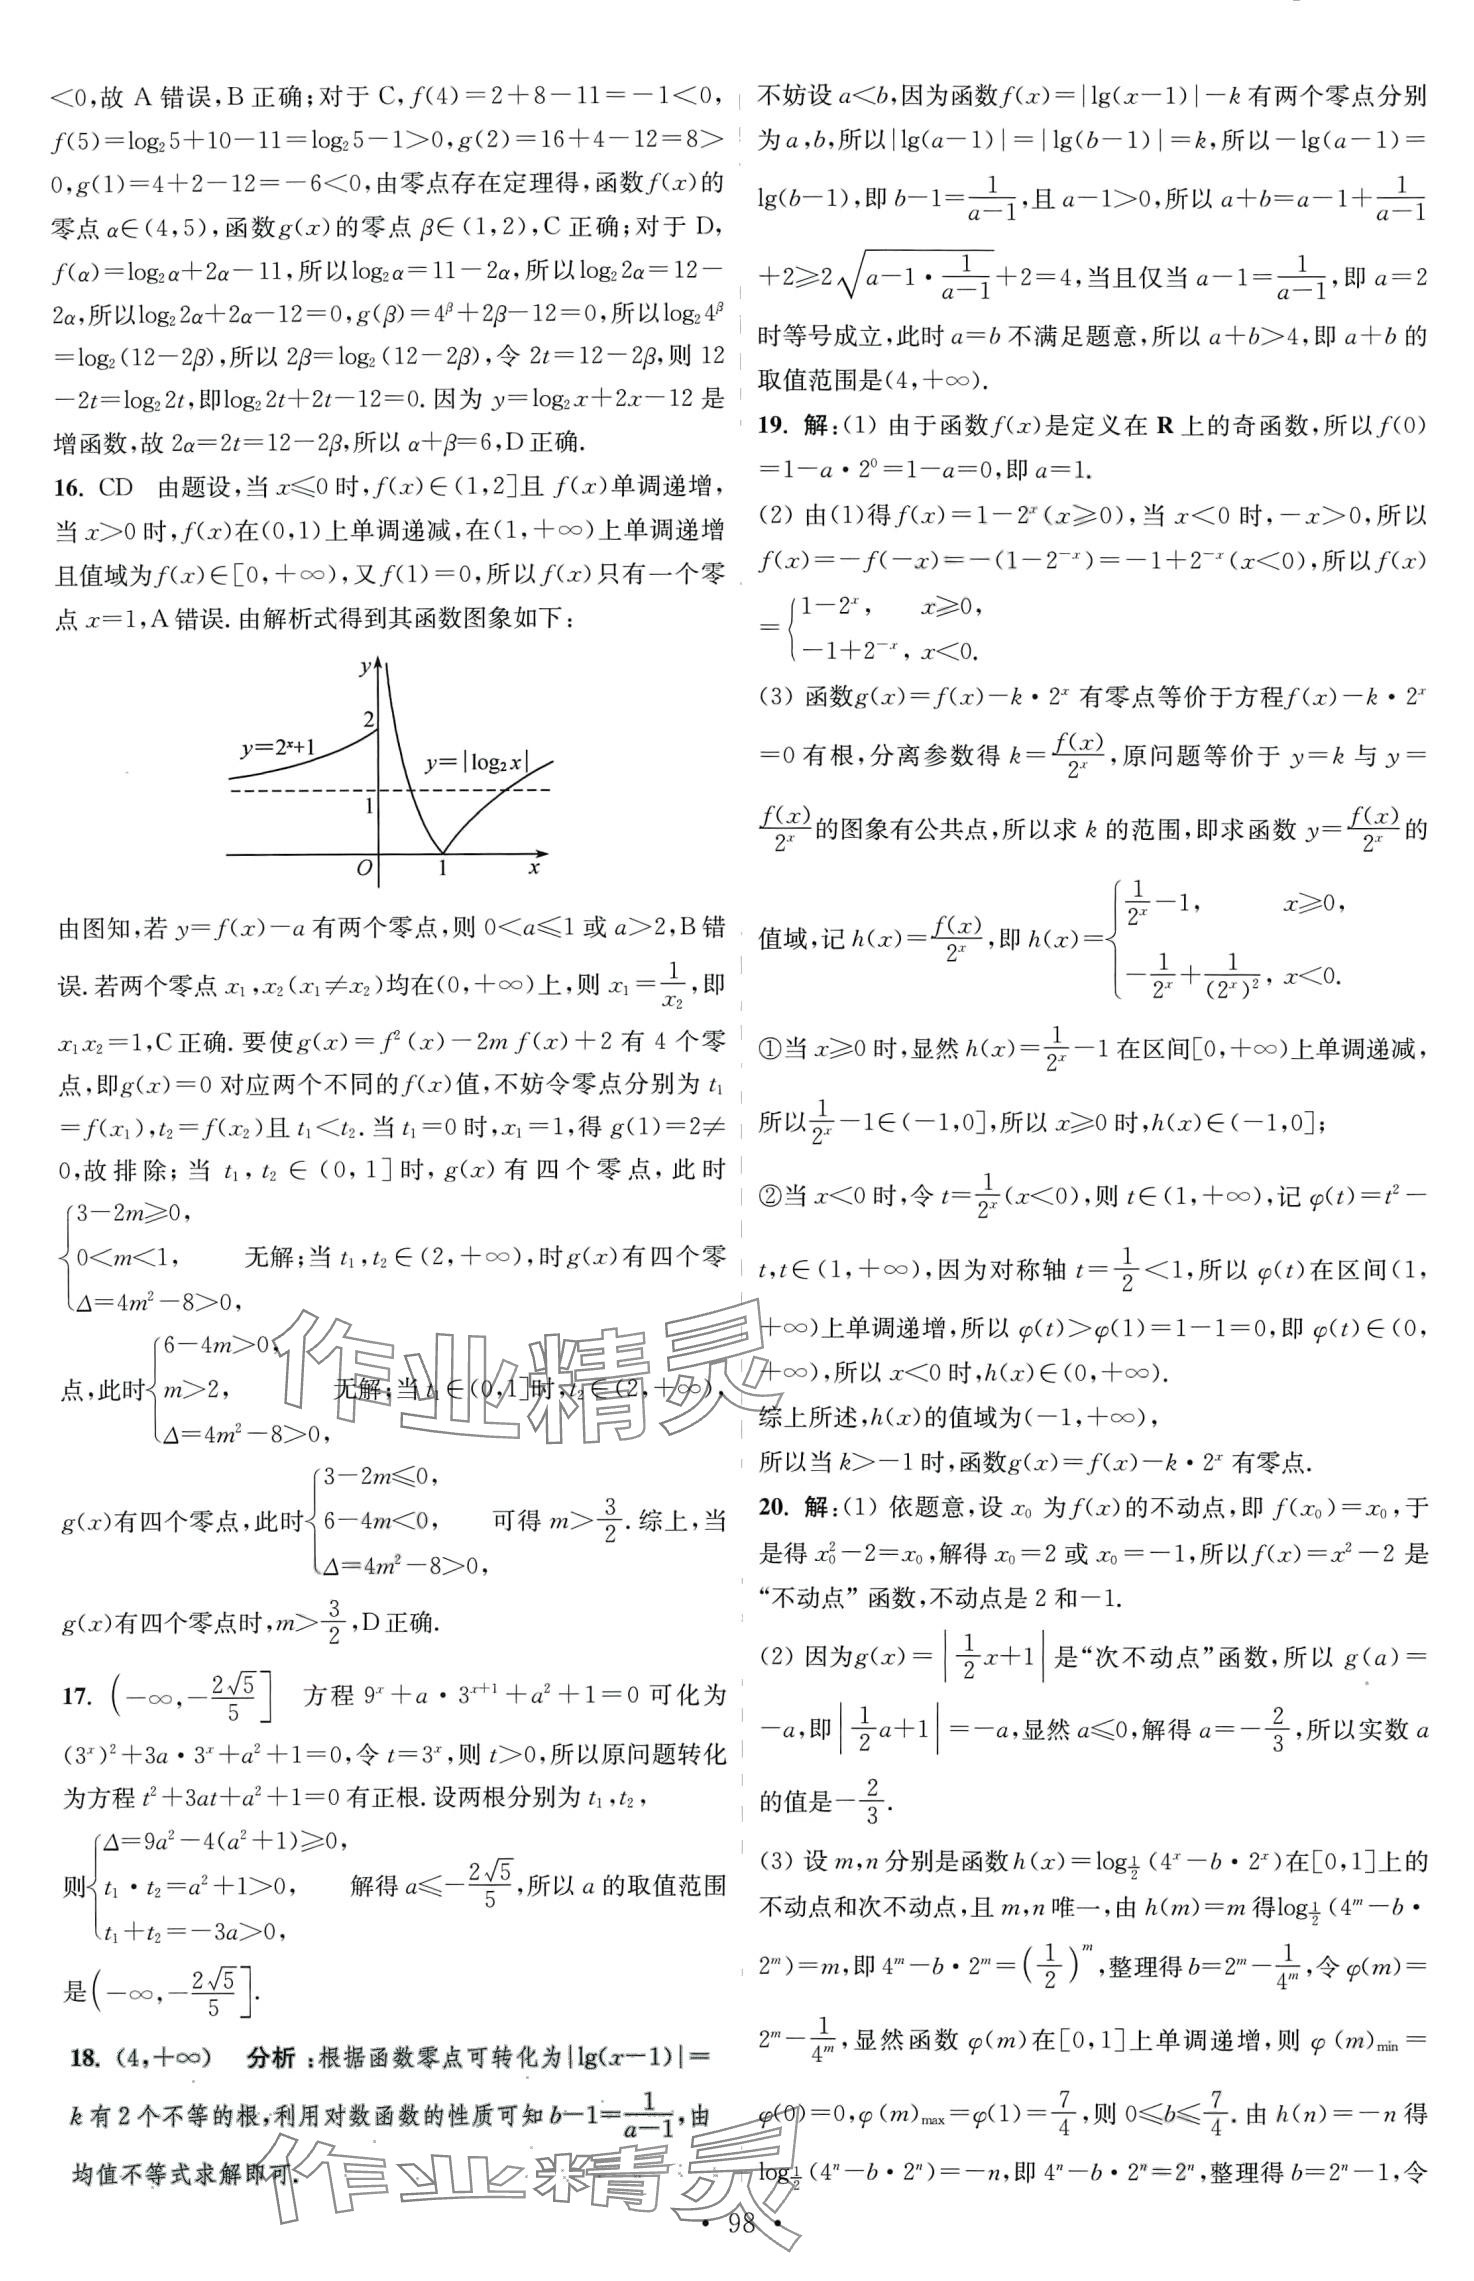 <0,故 A 错误,B 正确;对于 C,f(4)=2+8-11=-1<0,
f(5)=log₂5+10-11=log₂5-1>0,g(2)=16+4-12=8>
0,g(1)=4+2-12=-6<0,由零点存在定理得,函数f(x)的
零点 α∈(4,5),函数g(x)的零点 β∈(1,2),C 正确;对于 D,
f(α)=log₂α+2α-11,所以log₂α=11-2α,所以log₂2α=12-
2α,所以log₂2α+2α-12=0,g(β)=4^β+2β-12=0,所以log₂4^β
=log₂(12-2β),所以 2β=log₂(12-2β),令 2t=12-2β,则 12
-2t=log₂2t,即log₂2t+2t-12=0.因为 y=log₂x+2x-12 是
增函数,故 2α=2t=12-2β,所以 α+β=6,D 正确.
16. CD 由题设,当 x≤0 时,f(x)∈(1,2]且 f(x)单调递增,
当 x>0 时,f(x)在(0,1)上单调递减,在(1,+∞)上单调递增
且值域为f(x)∈[0,+∞),又f(1)=0,所以f(x)只有一个零
点 x=1,A 错误.由解析式得到其函数图象如下:
y
2
y=2ˣ+1
y=|log₂x|
1
O 1 x
由图知,若 y=f(x)-a 有两个零点,则 0<a≤1 或 a>2,B 错
误.若两个零点 x₁,x₂(x₁≠x₂)均在(0,+∞)上,则 x₁=1/x₂,即
x₁x₂=1,C 正确.要使g(x)=f²(x)-2m f(x)+2 有 4 个零
点,即g(x)=0 对应两个不同的f(x)值,不妨令零点分别为 t₁
=f(x₁),t₂=f(x₂)且 t₁<t₂.当 t₁=0 时,x₁=1,得 g(1)=2≠
0,故排除;当 t₁,t₂∈(0,1]时,g(x)有四个零点,此时
{3-2m≥0,
0<m<1, 无解;当 t₁,t₂∈(2,+∞),时g(x)有四个零
Δ=4m²-8>0,
{6-4m>0,
点,此时 m>2, 无解;当 t₁∈(0,1]时,t₂∈(2,+∞),
Δ=4m²-8>0,
{3-2m≤0,
g(x)有四个零点,此时 6-4m<0, 可得 m>3/2.综上,当
Δ=4m²-8>0,
g(x)有四个零点时,m>3/2,D 正确.
17. (-∞,-2√5/5] 方程 9ˣ+a·3ˣ⁺¹+a²+1=0 可化为
(3ˣ)²+3a·3ˣ+a²+1=0,令 t=3ˣ,则 t>0,所以原问题转化
为方程 t²+3at+a²+1=0 有正根.设两根分别为 t₁,t₂,
{Δ=9a²-4(a²+1)≥0,
则 t₁·t₂=a²+1>0, 解得 a≤-2√5/5,所以 a 的取值范围
t₁+t₂=-3a>0,
是(-∞,-2√5/5].
18. (4,+∞) 分析:根据函数零点可转化为|lg(x-1)|=
k 有 2 个不等的根,利用对数函数的性质可知 b-1=1/(a-1),由
均值不等式求解即可.
不妨设 a<b,因为函数f(x)=|lg(x-1)|-k 有两个零点分别
为 a,b,所以|lg(a-1)|=|lg(b-1)|=k,所以-lg(a-1)=
lg(b-1),即 b-1=1/(a-1),且 a-1>0,所以 a+b=a-1+1/(a-1)
+2≥2√(a-1·1/(a-1))+2=4,当且仅当 a-1=1/(a-1),即 a=2
时等号成立,此时 a=b 不满足题意,所以 a+b>4,即 a+b 的
取值范围是(4,+∞).
19. 解:(1) 由于函数f(x)是定义在 R 上的奇函数,所以f(0)
=1-a·2⁰=1-a=0,即 a=1.
(2) 由(1)得f(x)=1-2ˣ(x≥0),当 x<0 时,-x>0,所以
f(x)=-f(-x)=-(1-2⁻ˣ)=-1+2⁻ˣ(x<0),所以f(x)
={1-2ˣ, x≥0,
-1+2⁻ˣ, x<0.
(3) 函数g(x)=f(x)-k·2ˣ 有零点等价于方程f(x)-k·2ˣ
=0 有根,分离参数得 k=f(x)/2ˣ,原问题等价于 y=k 与 y=
f(x)/2ˣ的图象有公共点,所以求 k 的范围,即求函数 y=f(x)/2ˣ的
值域,记 h(x)=f(x)/2ˣ,即 h(x)={1/2ˣ-1, x≥0,
-1/2ˣ+1/(2ˣ)², x<0.
①当 x≥0 时,显然 h(x)=1/2ˣ-1 在区间[0,+∞)上单调递减,
所以1/2ˣ-1∈(-1,0],所以 x≥0 时,h(x)∈(-1,0];
②当 x<0 时,令 t=1/2ˣ(x<0),则 t∈(1,+∞),记 φ(t)=t²-
t,t∈(1,+∞),因为对称轴 t=1/2<1,所以 φ(t)在区间(1,
+∞)上单调递增,所以 φ(t)>φ(1)=1-1=0,即 φ(t)∈(0,
+∞),所以 x<0 时,h(x)∈(0,+∞).
综上所述,h(x)的值域为(-1,+∞),
所以当 k>-1 时,函数g(x)=f(x)-k·2ˣ 有零点.
20. 解:(1) 依题意,设 x₀ 为f(x)的不动点,即 f(x₀)=x₀,于
是得 x₀²-2=x₀,解得 x₀=2 或 x₀=-1,所以f(x)=x²-2 是
“不动点”函数,不动点是 2 和-1.
(2) 因为g(x)=|1/2x+1|是“次不动点”函数,所以 g(a)=
-a,即|1/2a+1|=-a,显然 a≤0,解得 a=-2/3,所以实数 a
的值是-2/3.
(3) 设 m,n 分别是函数 h(x)=log_{1/2}(4ˣ-b·2ˣ)在[0,1]上的
不动点和次不动点,且 m,n 唯一,由 h(m)=m 得log_{1/2}(4ᵐ-b·
2ᵐ)=m,即 4ᵐ-b·2ᵐ=(1/2)ᵐ,整理得 b=2ᵐ-1/4ᵐ,令 φ(m)=
2ᵐ-1/4ᵐ,显然函数 φ(m)在[0,1]上单调递增,则 φ(m)min=
φ(0)=0,φ(m)max=φ(1)=7/4,则 0≤b≤7/4.由 h(n)=-n 得
log_{1/2}(4ⁿ-b·2ⁿ)=-n,即 4ⁿ-b·2ⁿ=2ⁿ,整理得 b=2ⁿ-1,令
作业精灵
作业精灵
· 98 ·